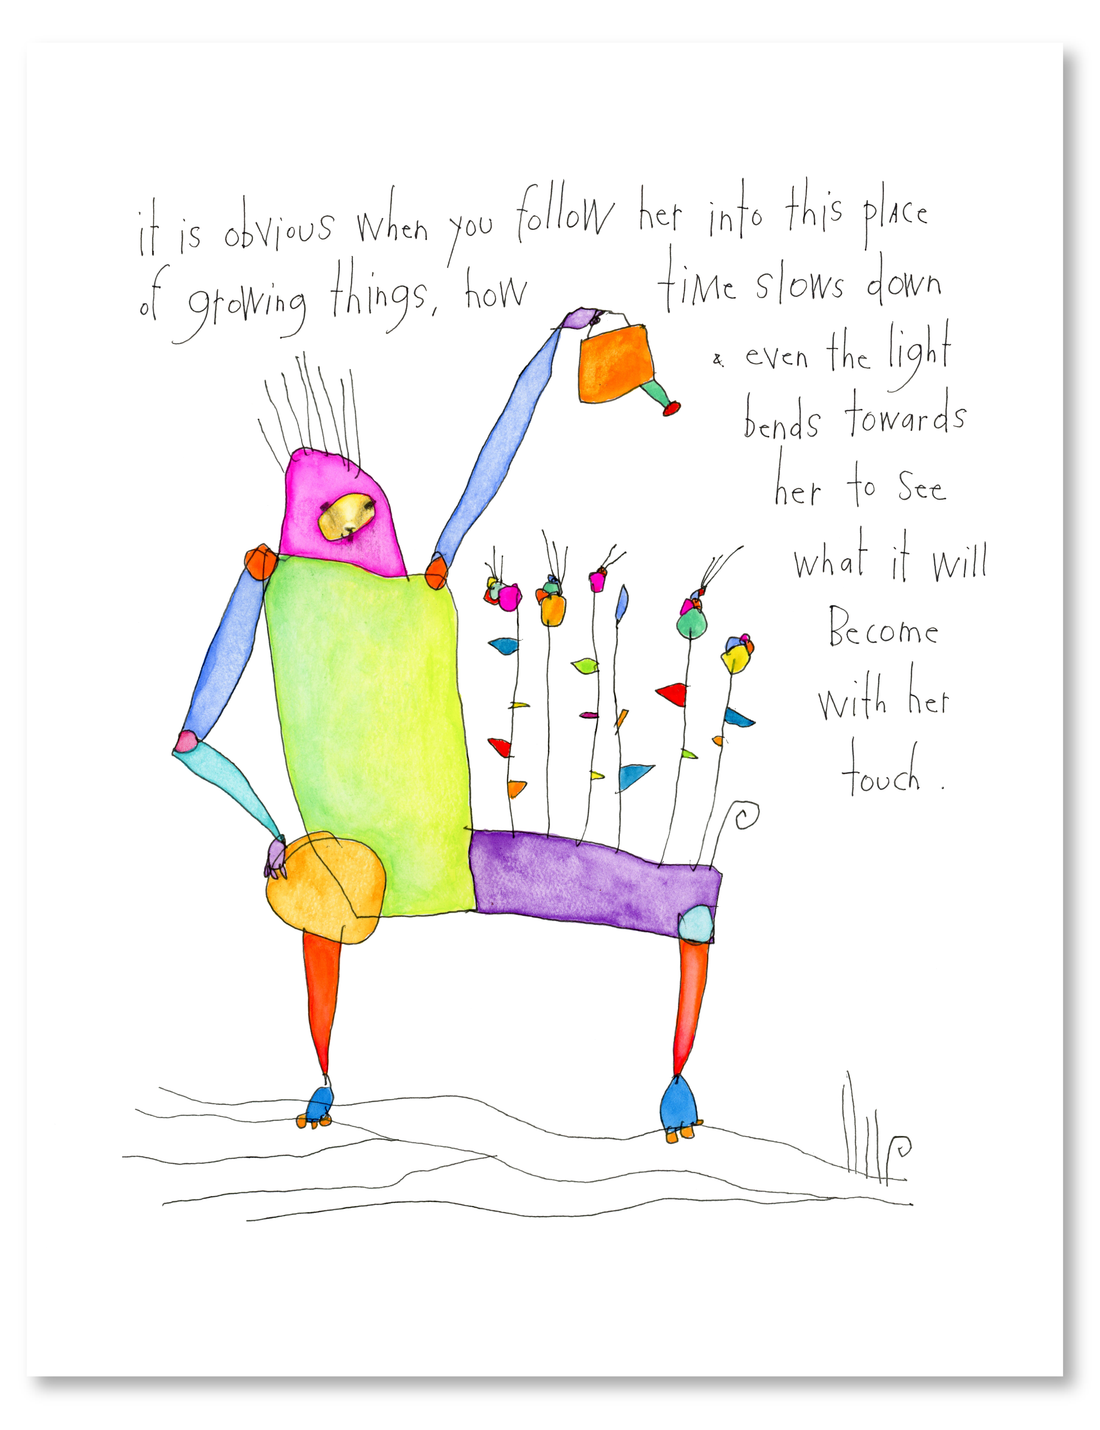 it is obvious when you follow her into this place
of growing things, how time slows down
& even the light
bends towards
her to see
what it will
Become
with her
touch.